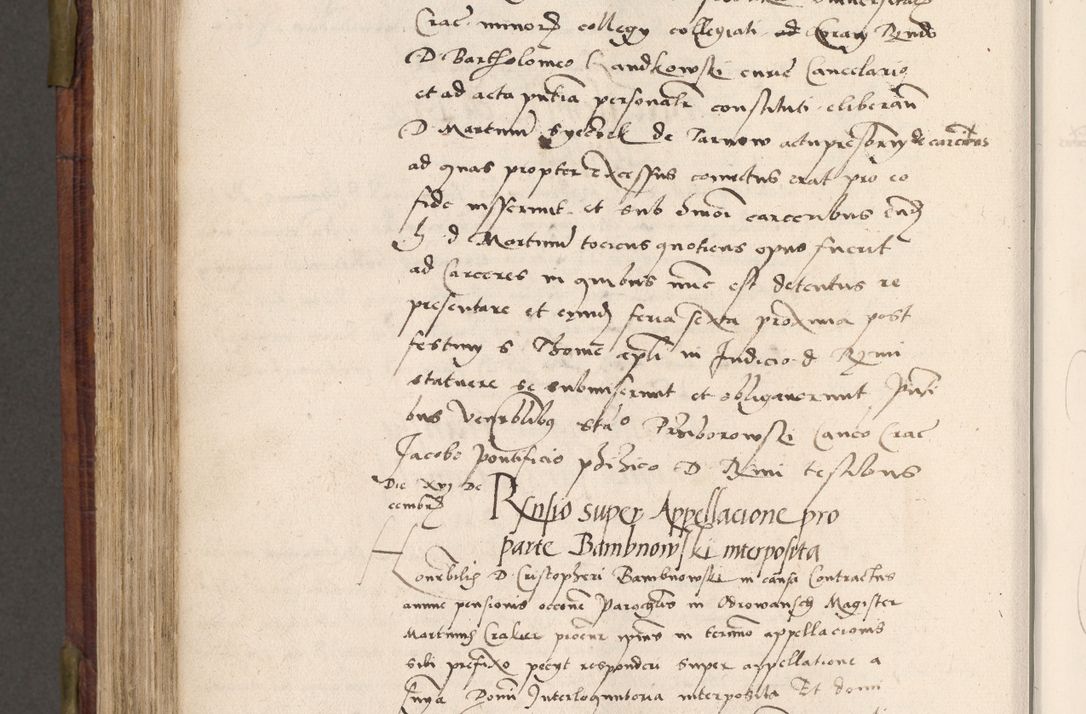 Crac minorꝭ collegy collegiati ad Coram Rvndo
D Bartholomeo Gandkowski curie Cancelario
et ad acta pntia personalr constituti eliberan
D Martinū Syekel de Tarnow actu presbrm de carcibus
ad quas propter excessus coniectus erat pro eo
fide iussernt et sub dmoi carceribus End
h d Martinū tociens quotiens opus fuerit
ad Carceres in quibus nunc est detentus re
presentare et eund feria sexta proxima post
festum s Thome apli in Judicio d Rmi
statuere se submisernt et obligauernt Pnti
bus Venrblibus Stao Prziborowski Canco Crac
Jacobo Pontificio phisico D Rmi testibus
Die xvj De
cembrꝭ
Rnsio super Appellacione pro
parte Bambnowski interposita
Honrbilis D Cristopheri Bambnowski in causa Contractus
annue pensionis occone Parochlis in Odrowansch Magister
Martinus Craker procur ipius in termno appellacionis
sibi prefixo pecyt responderi super appellatione a
snya Domi Interloqutoria interposita Et domi